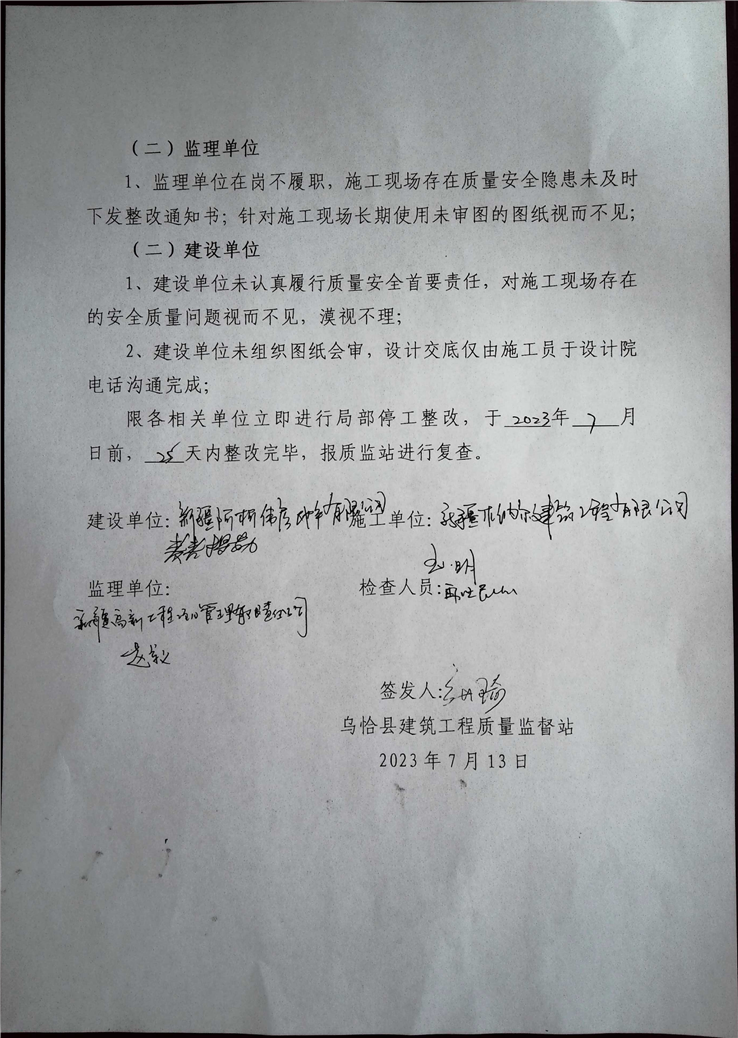 （二）监理单位
1、监理单位在岗不履职，施工现场存在质量安全隐患未及时
下发整改通知书；针对施工现场长期使用未审图的图纸视而不见；
（二）建设单位
1、建设单位未认真履行质量安全首要责任，对施工现场存在
的安全质量问题视而不见，漠视不理；
2、建设单位未组织图纸会审，设计交底仅由施工员于设计院
电话沟通完成；
限各相关单位立即进行局部停工整改，于 2023年 7 月
日前， 25 天内整改完毕，报质监站进行复查。
建设单位：新疆阿 有限公司 施工单位：新疆 建筑工程有限公司
监理单位： 检查人员：
新疆高新工程项目管理有限责任公司
签发人：
乌恰县建筑工程质量监督站
2023年7月13日